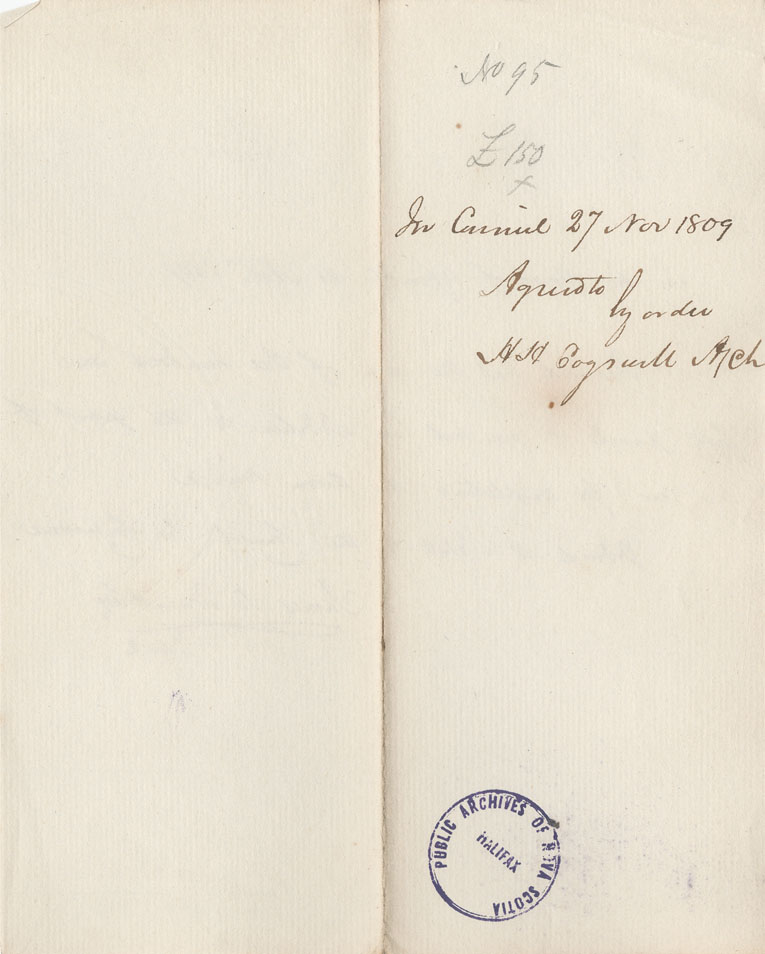 No 95
£150
x
In Council 27 Nov 1809
Agreed to
by order
HH Cogswell A/Ch
PUBLIC ARCHIVES OF NOVA SCOTIA
HALIFAX